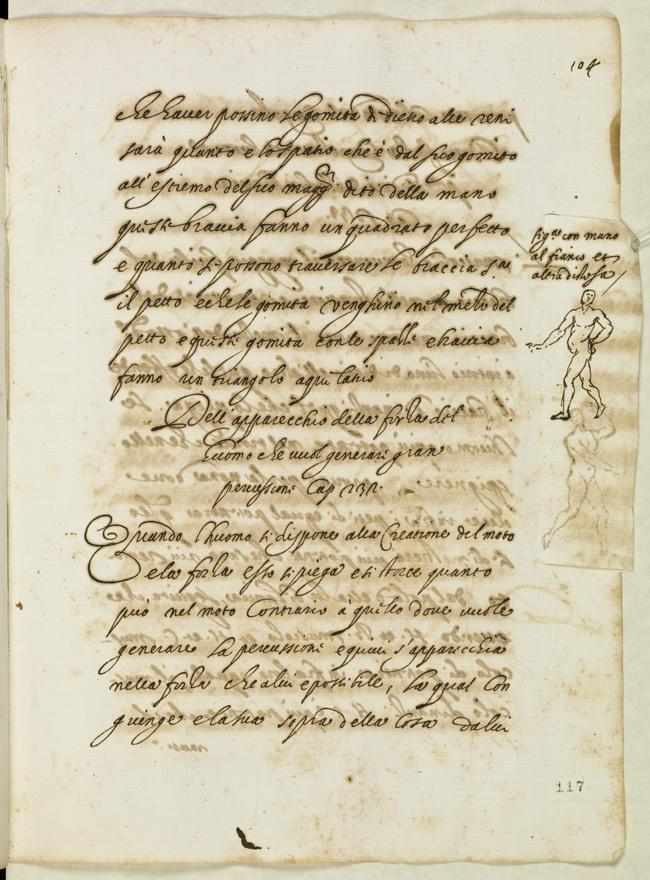 104
che haver possino le gomita di dietro alle reni
sarà quanto e lo spatio che è dal suo gomito
all'estremo del suo magg.r dito della mano
queste braccia fanno un quadrato perfetto
e quanto si possono traversare le braccia s.a
il petto e che le gomita venghino nel mezo del
petto e queste gomita con le spalle e braccia
fanno un triangolo equilatio
Dell'apparecchio della forza del
huomo che vuol generare gran
percussione Cap 232.
Quando l'huomo si dispone alla Creatione del moto
e la forza esso si piega e si storce quanto
può nel moto Contrario à quello dove vuole
generare la percussione e quivi s'apparecchia
nella forza che a lui e possibile, la qual Con
giunge e lascia sopra della Cosa da lui
fig.ra con mano
al fianco et
altra distesa
117